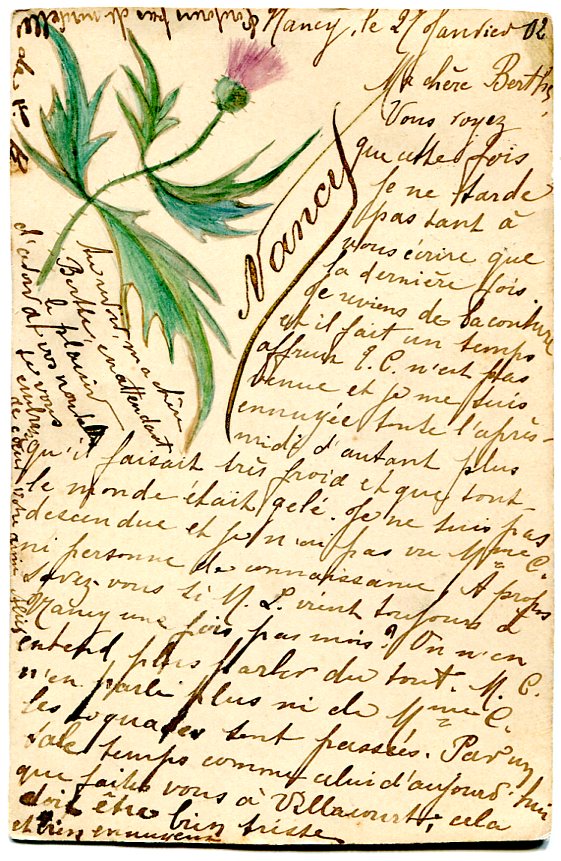 Nancy, le 27 Janvier 02
Ma chère Berthe,
Vous voyez
que cette fois
je ne tarde
pas tant à
vous écrire que
la dernière fois.
Je reviens de la couture
et il fait un temps
affreux E. C. n'est pas
venue et je me suis
ennuyée toute l'après-
midi d'autant plus
qu'il faisait très froid et que tout
le monde était gelé. Je ne suis pas
descendue et je n'ai pas vu Mme C.
ni personne de connaissance. A propos
savez-vous si M. L. vient toujours à
Nancy une fois pas mois? On n'en
entend plus parler du tout. M. C.
n'en parle plus ni de Mme C.
les sont passées. Par un
sale temps comme celui d'aujourd'hui
que faites vous à Villacourt; cela
doit être bien triste
et bien ennuyeux
Nancy
Au revoir, ma chère
Berthe, en attendant
le plaisir
d'avoir vos nouvelles
je vous
embrasse
de cœur votre amie